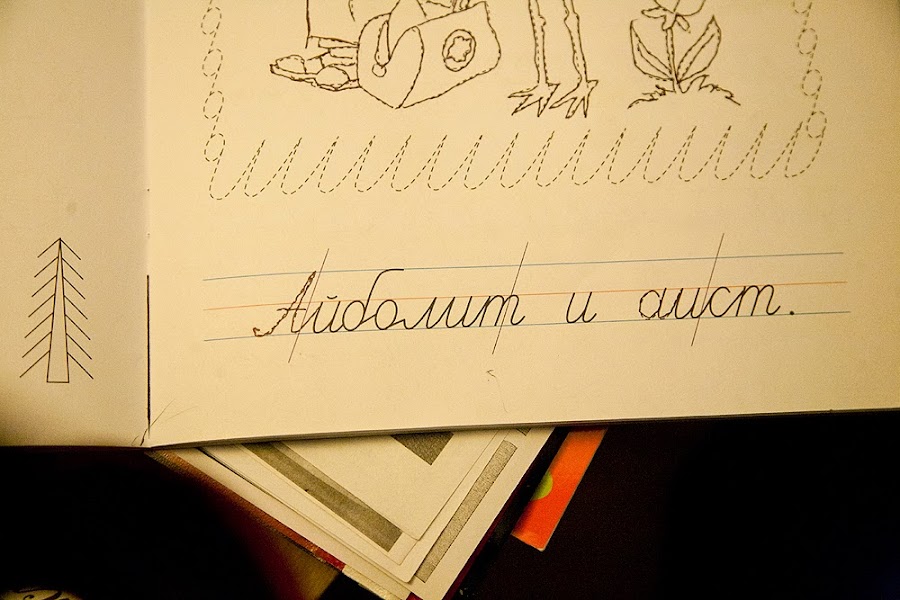 Айболит и аист.